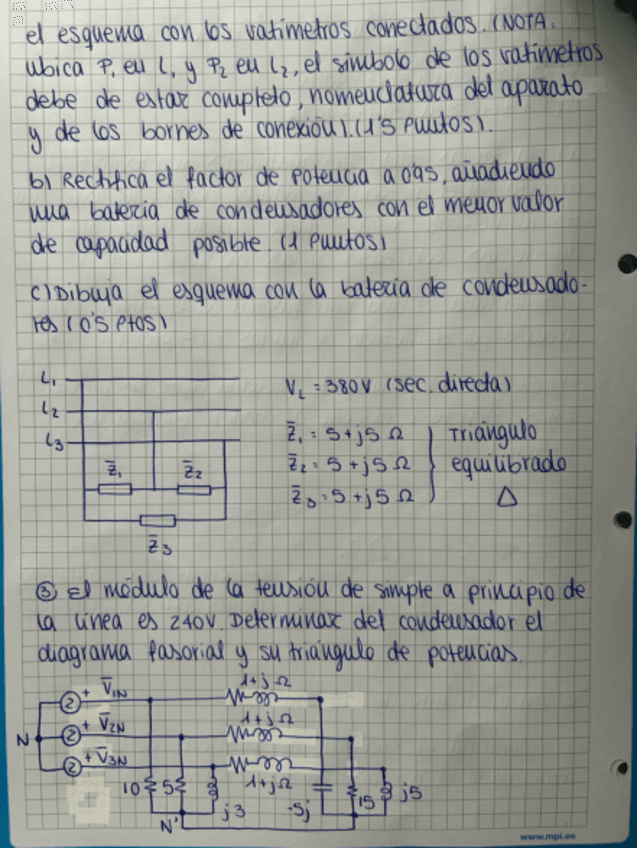 el esquema con los vatímetros conectados. (NOTA.
ubica P₁ en L₁ y P₂ en L₂, el símbolo de los vatímetros
debe de estar completo, nomenclatura del aparato
y de los bornes de conexión). (1'5 Puntos).
b) Rectifica el factor de potencia a 0'95, añadiendo
una batería de condensadores con el menor valor
de capacidad posible. (1 Puntos)
c) Dibuja el esquema con la batería de condensado-
res (0'5 Ptos)
L₁
L₂
L₃
Z̄₁
Z̄₂
Z̄₃
V_L = 380V (sec. directa)
Z̄₁ = 5+j5 Ω
Z̄₂ = 5+j5 Ω
Z̄₃ = 5+j5 Ω
Triángulo
equilibrado
Δ
③ El módulo de la tensión de simple a principio de
la línea es 240V. Determinar del condensador el
diagrama fasorial y su triángulo de potencias.
N
+ V̄1N
+ V̄2N
+ V̄3N
1+j Ω
1+j Ω
1+j Ω
10
5
j3
-5j
15
j5
N'
www.mpi.es